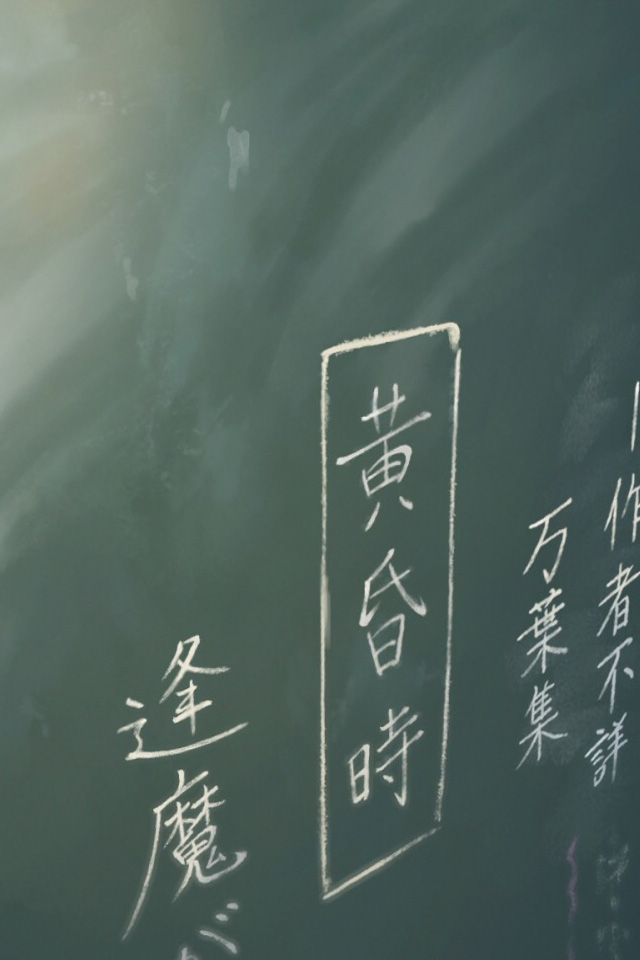 作者不詳
万葉集
黄昏時
逢魔が